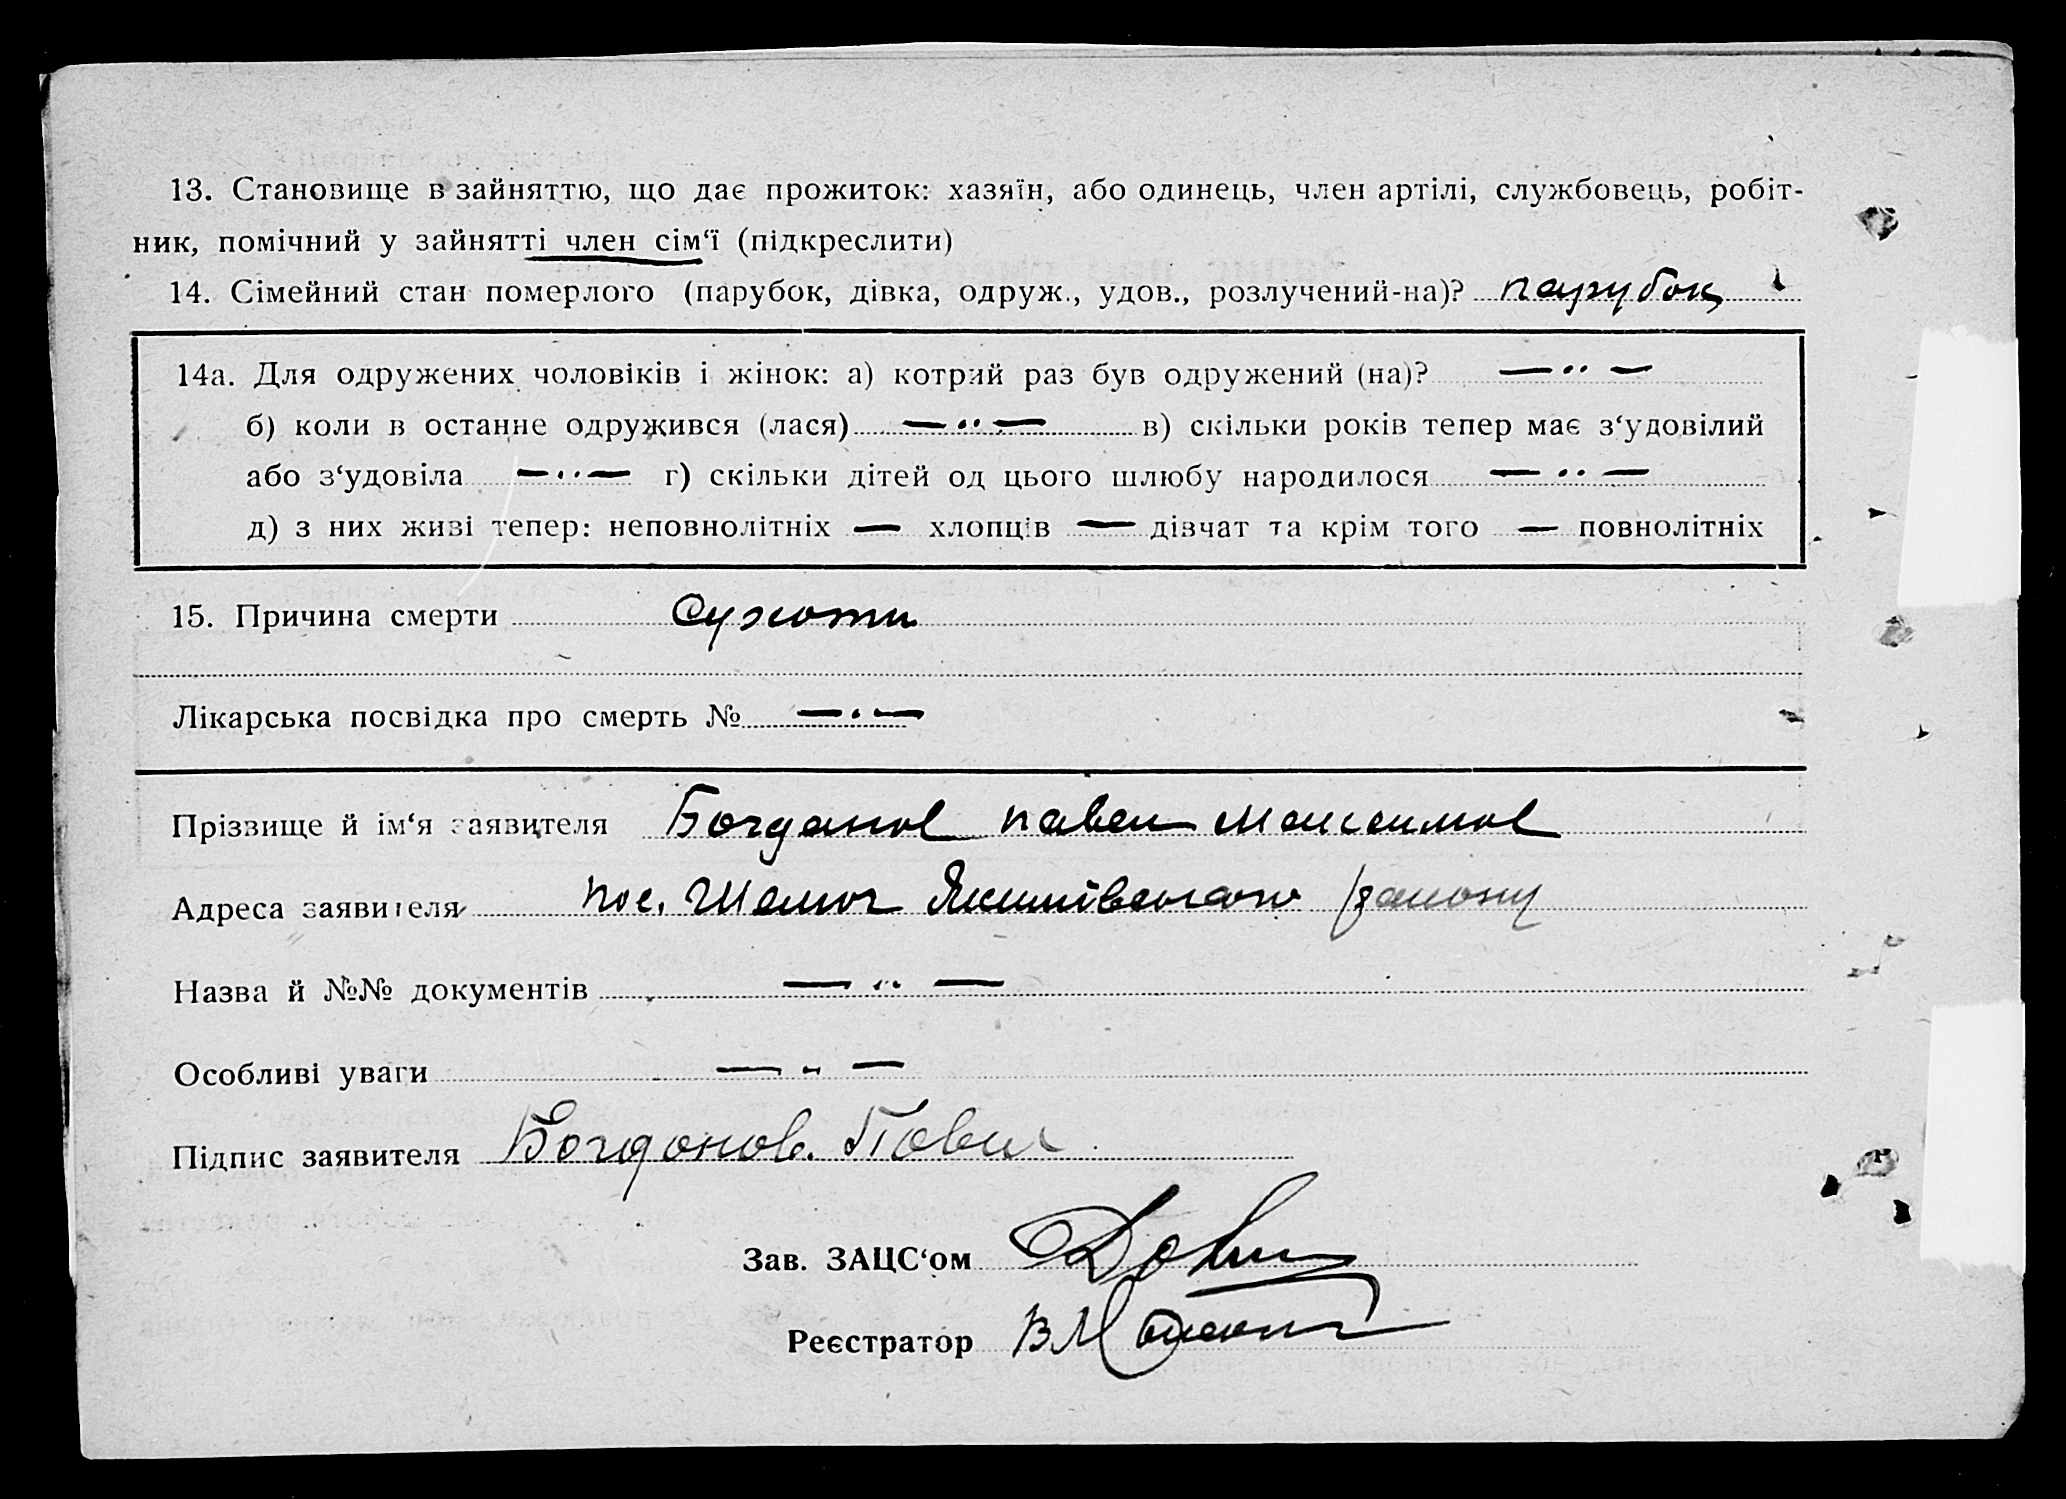 13. Становище в зайняттю, що дає прожиток: хазяїн, або одинець, член артілі, службовець, робіт-
ник, помічний у зайнятті член сім‘ї (підкреслити)
14. Сімейний стан померлого (парубок, дівка, одруж., удов., розлучений-на)? парубок
14а. Для одружених чоловіків і жінок: а) котрий раз був одружений (на)? — ·· —
б) коли в останнє одружився (лася) — ·· — в) скільки років тепер має з‘удовілий
або з‘удовіла — ·· — г) скільки дітей од цього шлюбу народилося — ·· —
д) з них живі тепер: неповнолітніх — хлопців — дівчат та крім того — повнолітніх
15. Причина смерти Сухоти
Лікарська посвідка про смерть № — · —
Прізвище й ім‘я заявителя Богданов Павел Максимов
Адреса заявителя пос. Якимівського району
Назва й №№ документів — ·· —
Особливі уваги — ·· —
Підпис заявителя Богдонов. Повил
Зав. ЗАЦС‘ом
Реєстратор